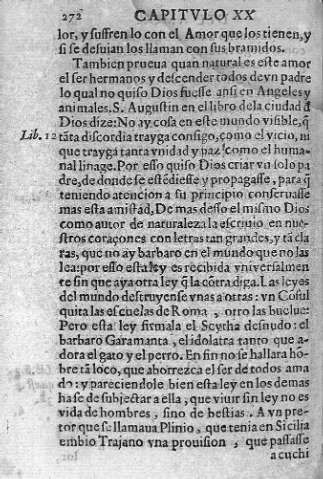 272 CAPITVLO XX
lor, y suffren lo con el Amor que los tienen, y
si se desuian los llaman con sus bramidos.
Tambien prueua quan natural es este amor
el ser hermanos y descender todos de vn padre
lo qual no quiso Dios fuesse ansi en Angeles y
animales. S. Augustin en el libro de la ciudad đ
Dios dize: No ay cosa en este mundo visible, q̃
Lib. 12 tãta discordia trayga consigo, como el vicio, ni
que trayga tanta vnidad y paz como el huma-
nal linage. Por esso quiso Dios criar vn solo pa
dre, de donde se estēdiesse y propagasse, para q̃
teniendo atencion a su principio conseruasse
mas esta amistad. De mas desso el mismo Dios
como autor de naturaleza la escriuio en nue-
stros coraçones con letras tan grandes, y tã cla
ras, que no ay barbaro en el mundo que no las
lea: por esso esta ley es recibida vniuersalmen
te sin que aya otra ley q̃ la cõtra diga. Las leyes
del mundo destruyense vnas a otras: vn Cõsul
quita las escuelas de Roma, otro las buelue:
Pero esta ley firmala el Scytha desnudo: el
barbaro Garamanta, el idolatra tanto que a-
dora el gato y el perro. En fin no se hallara hõb-
re tã loco, que aborrezca el ser de todos ama
do: y pareciendole bien esta ley en los demas
ha se de subjectar a ella, que viuir sin ley no es
vida de hombres, sino de bestias. A vn pre-
tor que se llamaua Plinio, que tenia en Sicilia
embio Trajano vna prouision, que passasse
a cuchi